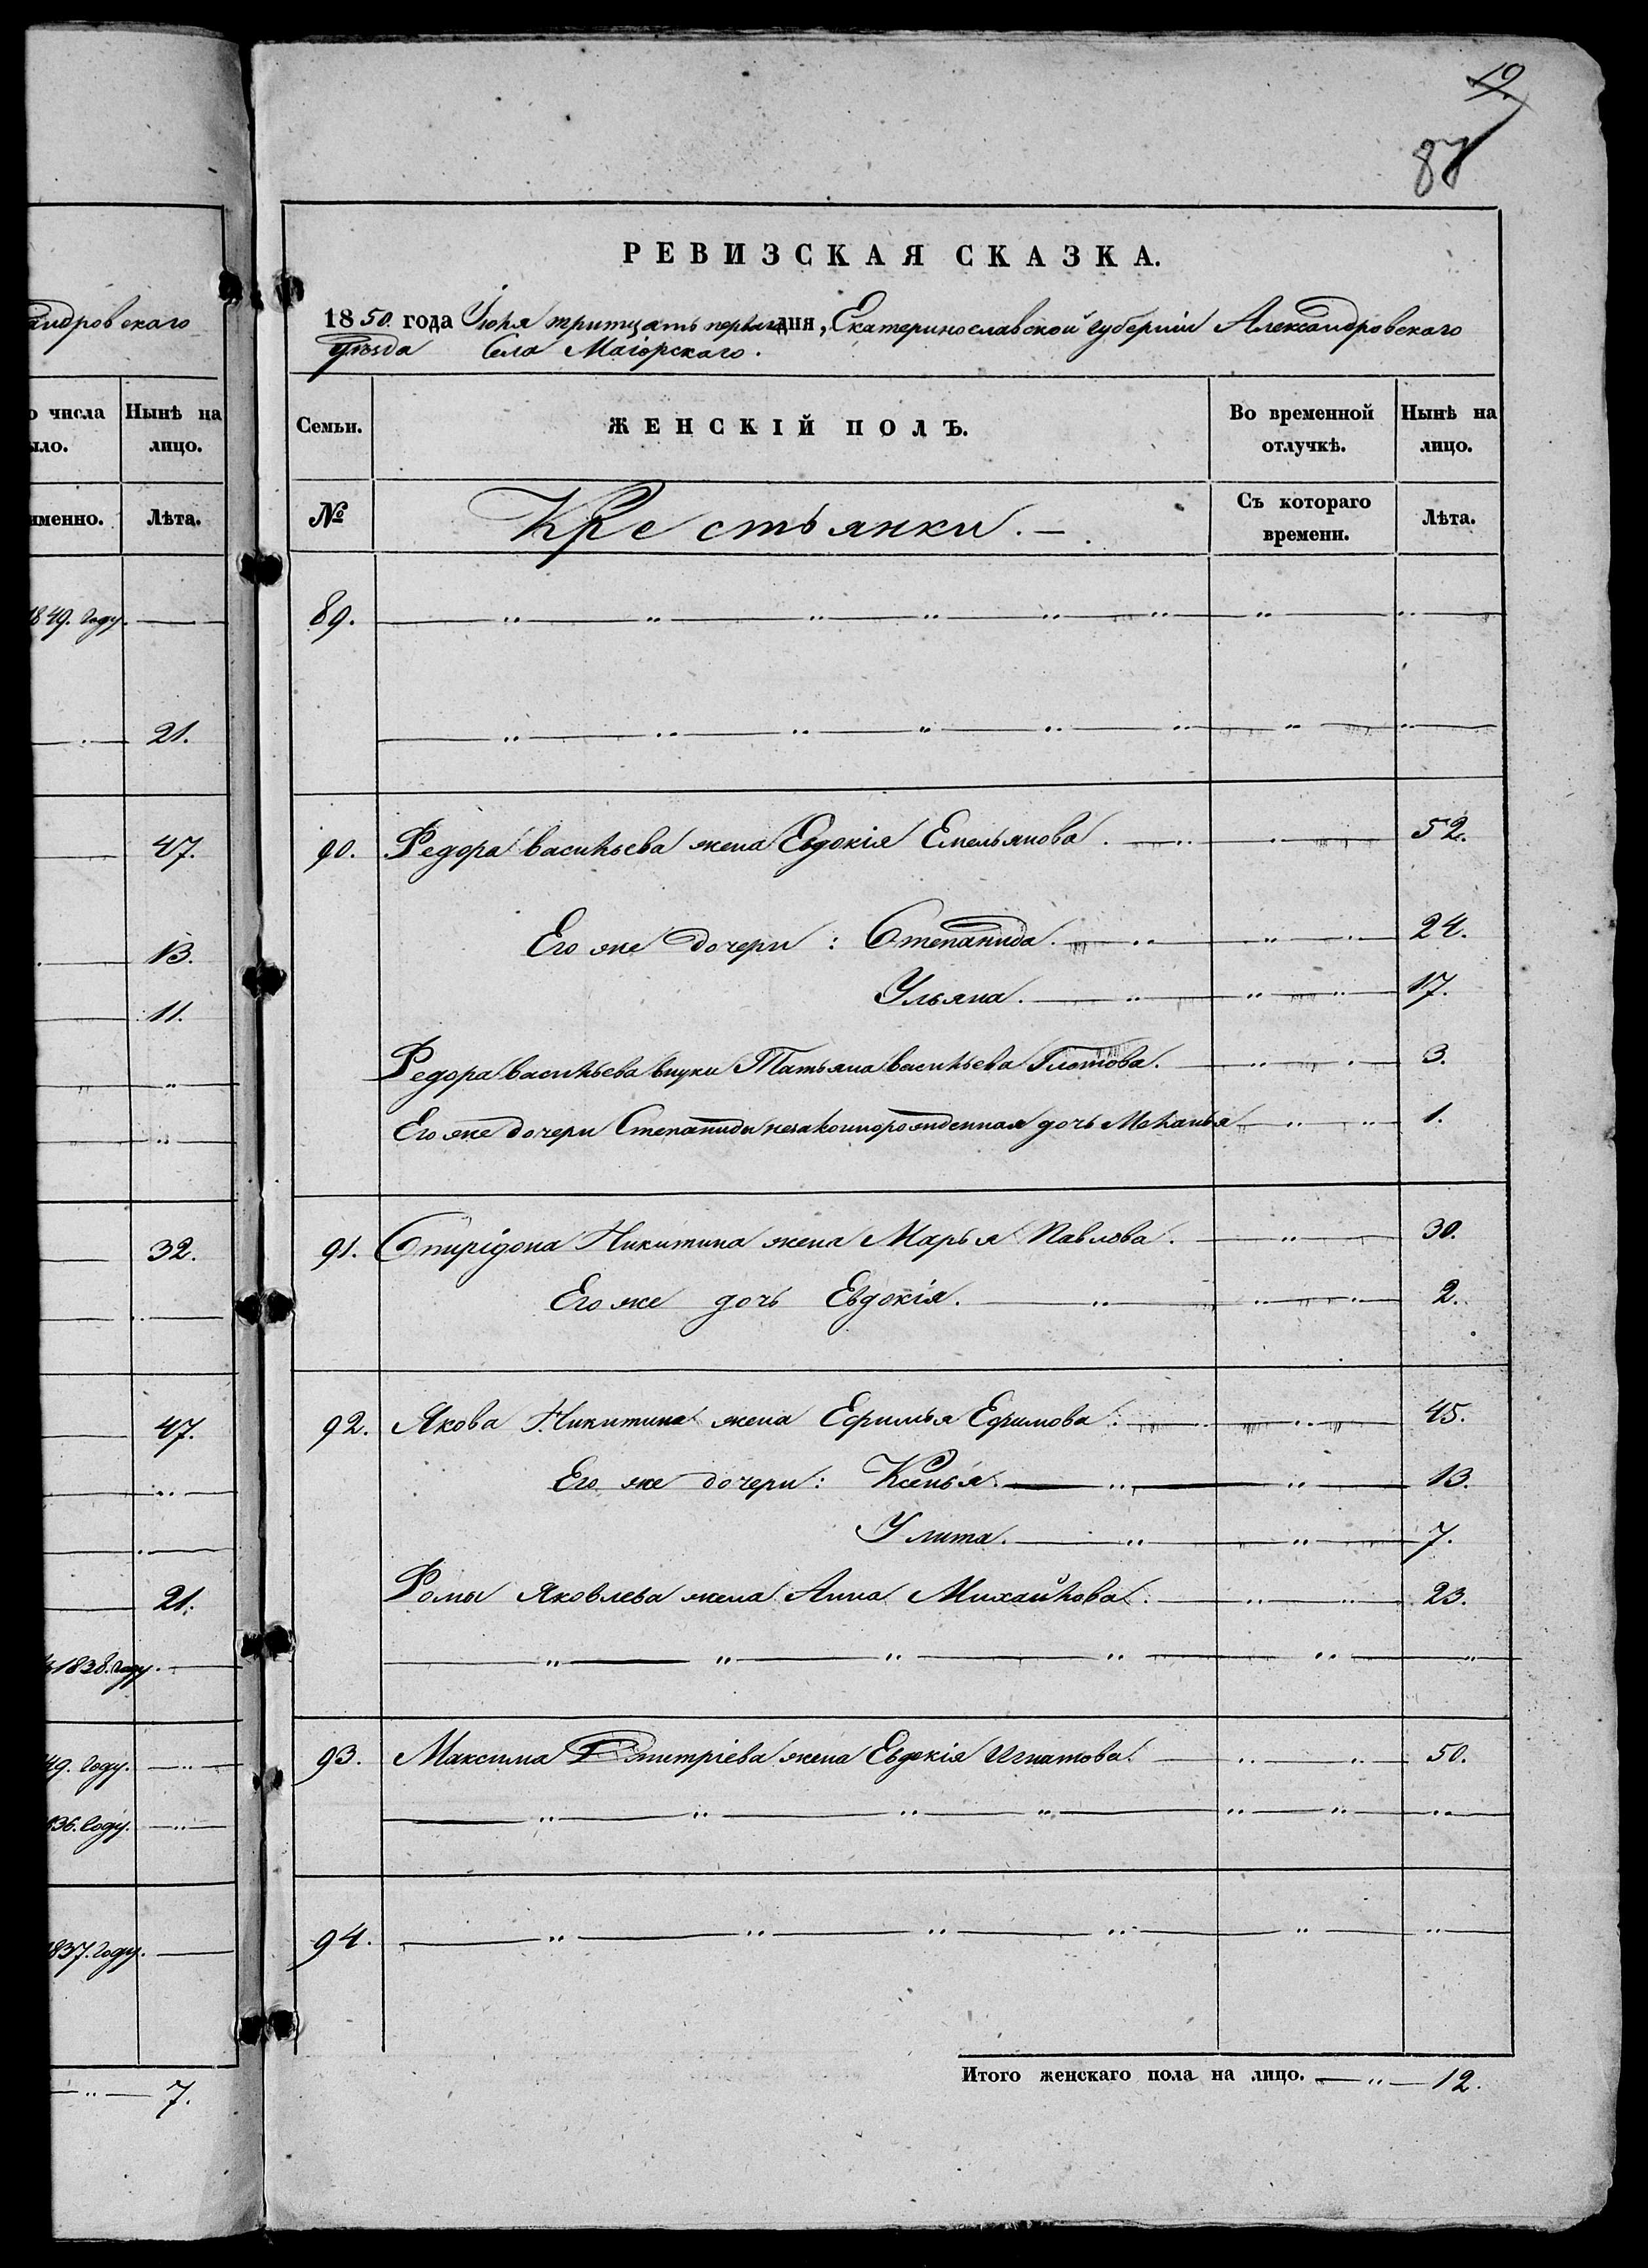 19.
87
андровскаго
РЕВИЗСКАЯ СКАЗКА.
1850. года Іюля тритцать перваго дня, Екатеринославской губерніи Александровскаго
уѣзда Села Маіорскаго.
числа
ыло.
Нынѣ на
лицо.
именно.
Лѣта.
Семьи.
ЖЕНСКІЙ ПОЛЪ.
Во временной
отлучкѣ.
Нынѣ на
лицо.
№
Крестьянки. —
Съ котораго
времени.
Лѣта.
1849. году.
21.
47.
13.
11.
32.
47.
21.
1838. году.
49. году.
836. году.
837. году.
7.
89.
90. Федора Васильева жена Евдокія Емельянова. 52.
Его же дочери: Степанида. 24.
Ульяна. 17.
Федора Васильева внуки Татьяна Васильева Глотова. 3.
Его же дочери Степаниды незаконнорожденная дочь Меланья 1.
91. Спиридона Никитина жена Марья Павлова. 30.
Его же дочь Евдокія. 2.
92. Якова Никитина жена Ефимья Ефимова. 45.
Его же дочери: Ксенья. 13.
Улита. 7.
Фомы Яковлева жена Анна Михайлова. 23.
93. Максима Дмитріева жена Евдокія Игнатова. 50.
94.
Итого женскаго пола на лицо. 12.